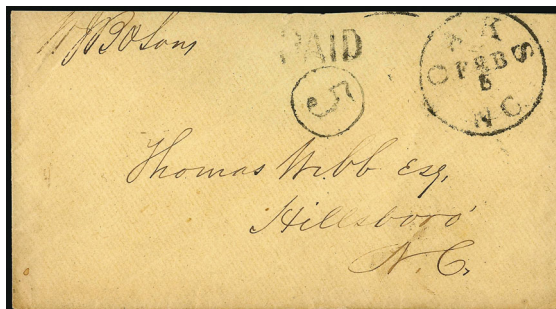 W J B & Sons
PAID
5
OAKS
FEB
5
N.C.
Thomas Webb Esq,
Hillsboro'
N. C.